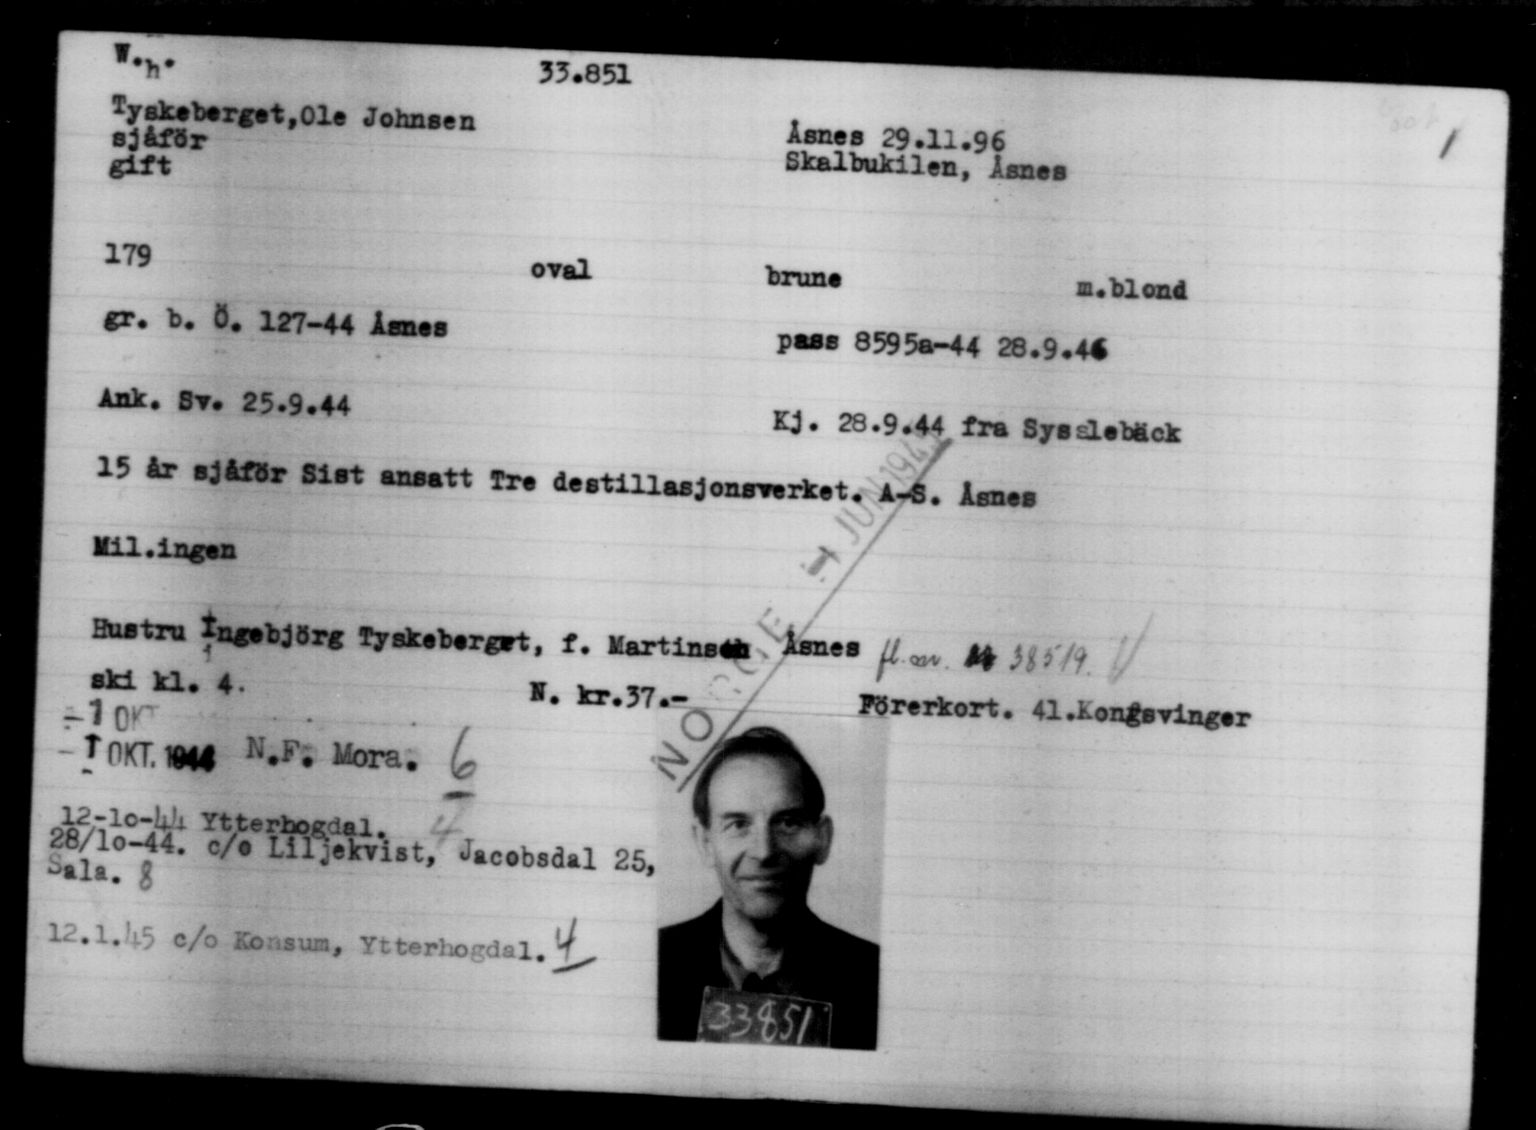 W.h. 33.851
Tyskeberget,Ole Johnsen Åsnes 29.11.96
sjåför Skalbukilen, Åsnes
gift
179 oval brune m.blond
gr. b. Ö. 127-44 Åsnes pass 8595a-44 28.9.46
Ank. Sv. 25.9.44 Kj. 28.9.44 fra Sysslebäck
15 år sjåför Sist ansatt Tre destillasjonsverket. A-S. Åsnes
Mil.ingen
Hustru Ingebjörg Tyskeberget, f. Martinsen Åsnes fl. nr. 38519.
ski kl. 4. N. kr.37.- Förerkort. 41.Kongsvinger
NORGE - JUN 1945
-1 OKT
-1 OKT. 1944 N.F. Mora. 6
12-10-44 Ytterhogdal. 4
28/10-44. c/o Liljekvist, Jacobsdal 25,
Sala. 8
12.1.45 c/o Konsum, Ytterhogdal. 4
33851